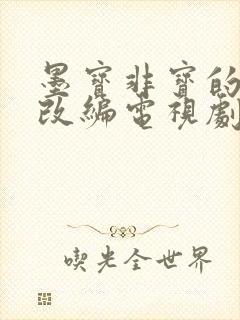 墨寶非寶的
改編電視劇
喫光全世界